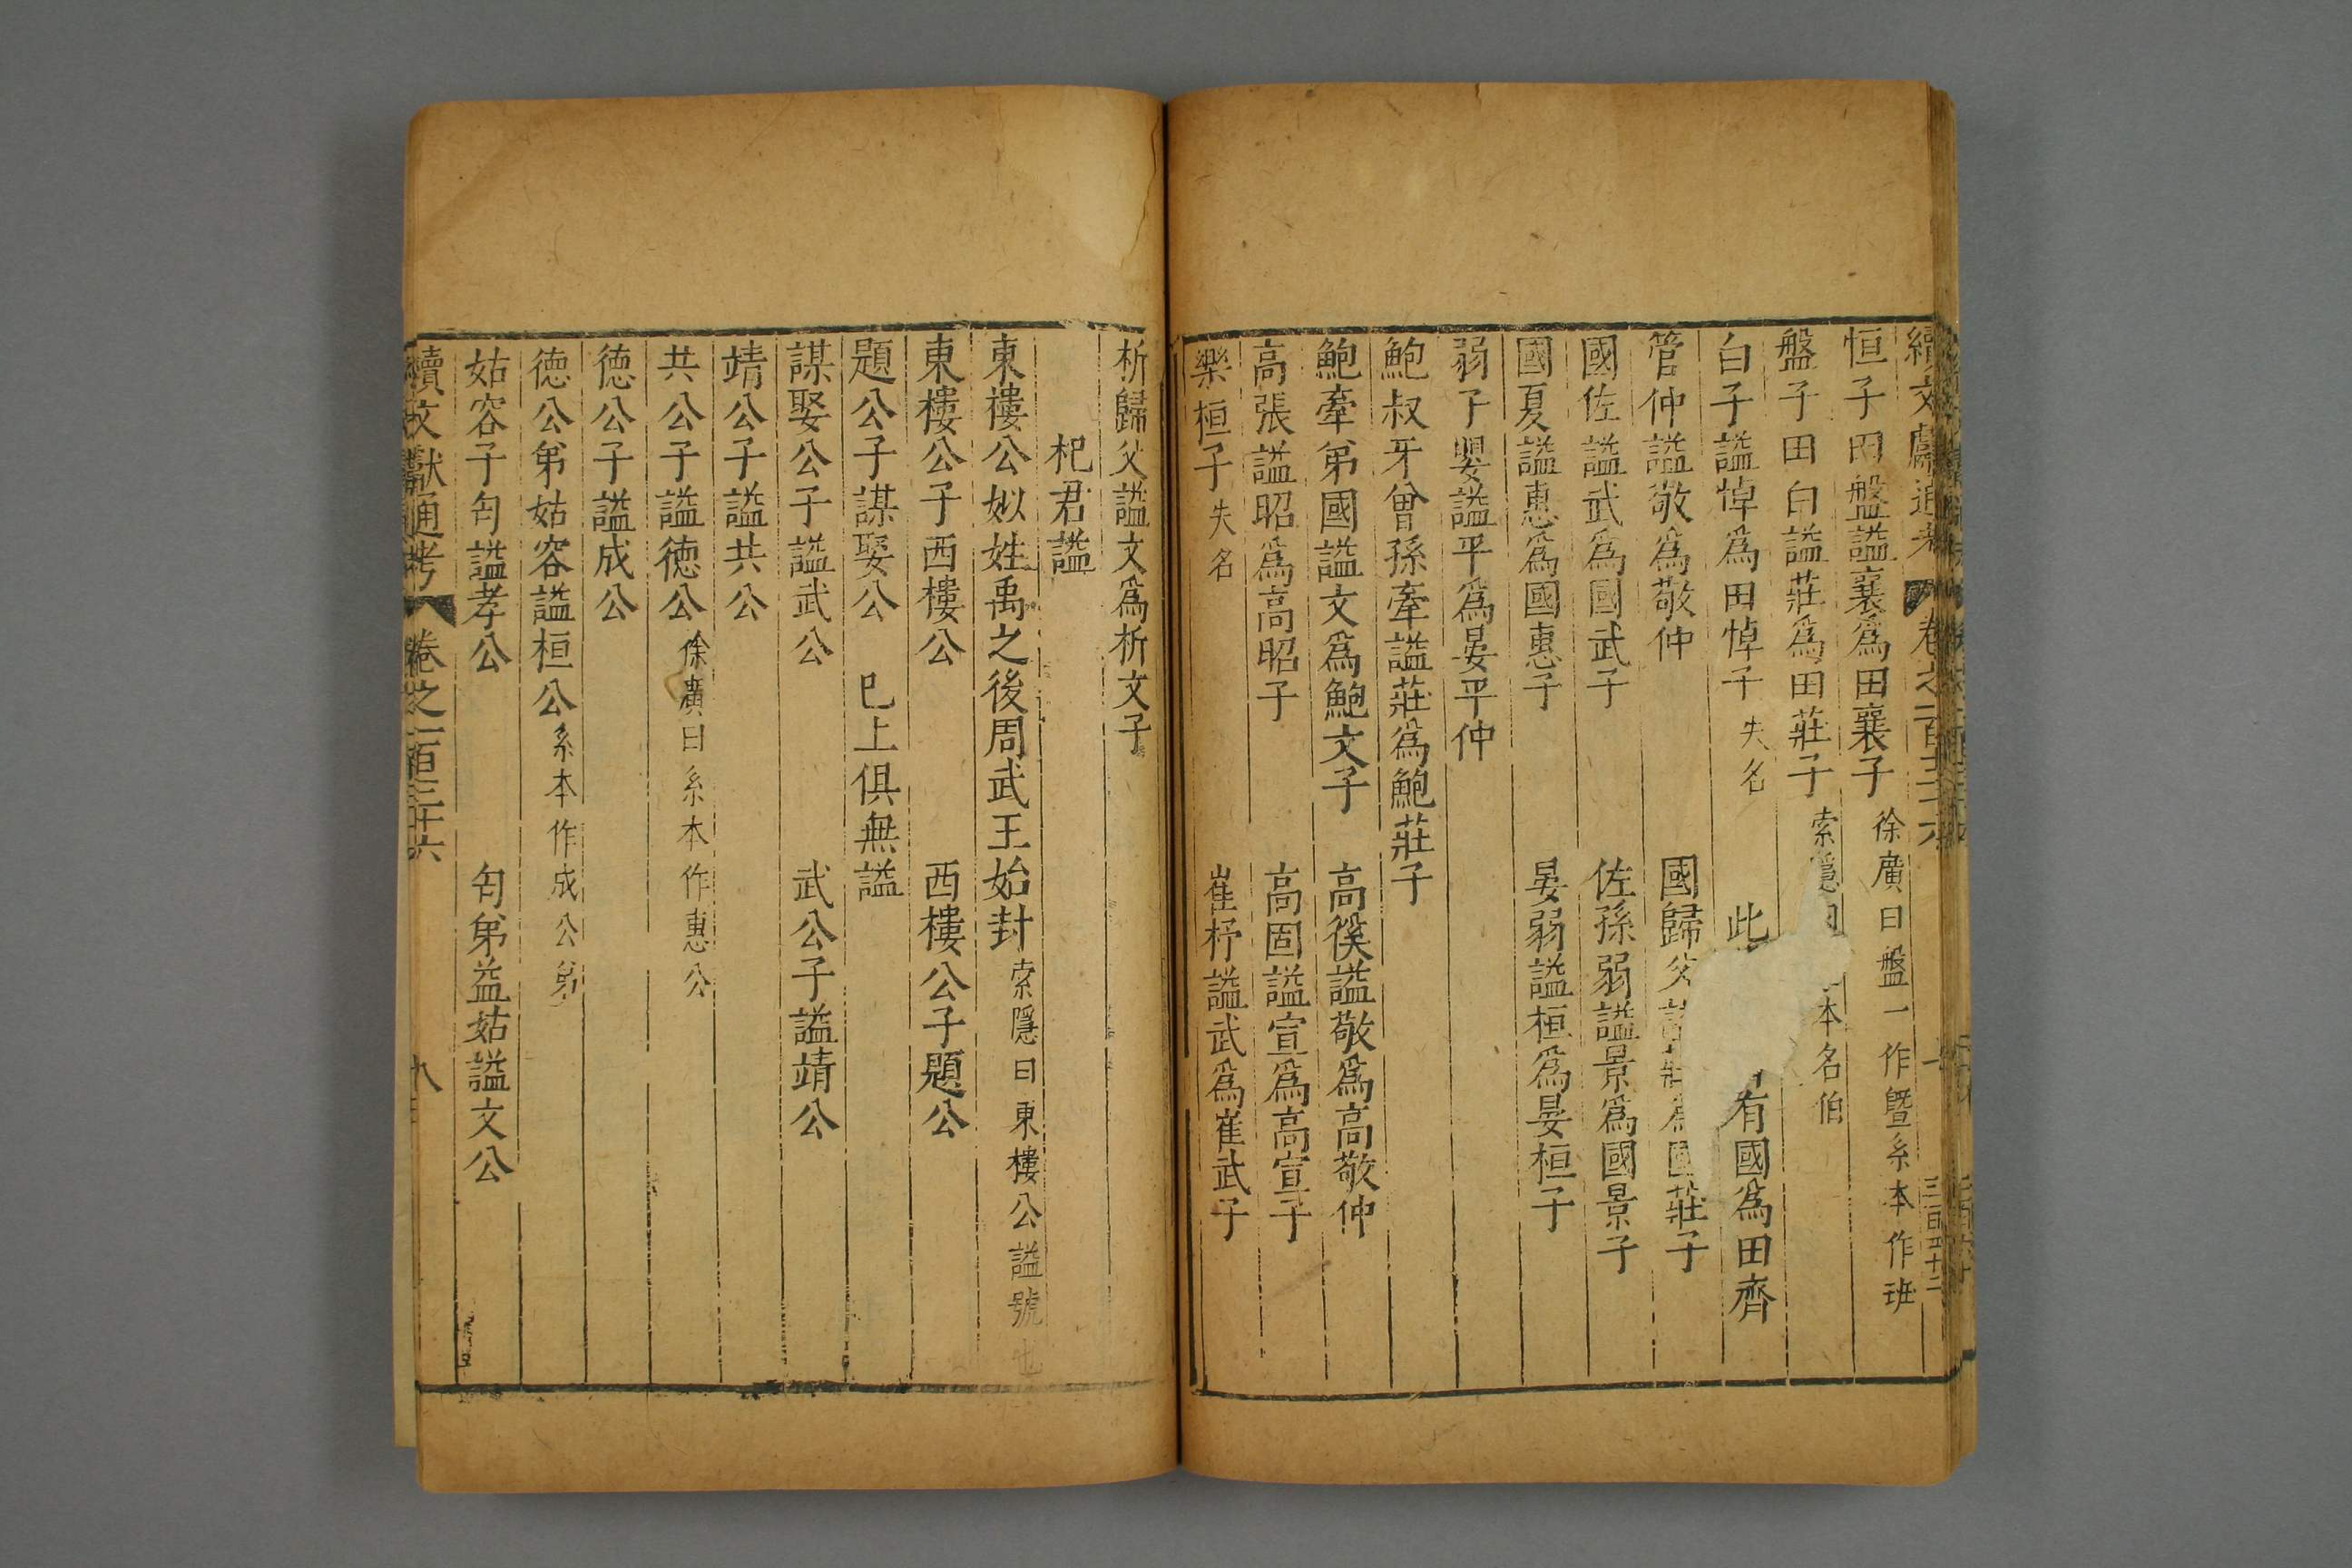 續文獻通考 卷之一百三十六
恒子田盤諡襄爲田襄子 徐廣曰盤一作暨系本作班
盤子田白諡莊爲田莊子 索隱 本名伯
白子諡悼爲田悼子 失名 此 有國爲田齊
管仲諡敬爲敬仲 國歸父 國莊子
國佐諡武爲國武子 佐孫弱諡景爲國景子
國夏諡惠爲國惠子 晏弱諡桓爲晏桓子
弱子嬰諡平爲晏平仲
鮑叔牙曾孫牽諡莊爲鮑莊子
鮑牽弟國諡文爲鮑文子 高傒諡敬爲高敬仲
高張諡昭爲高昭子 高固諡宣爲高宣子
欒桓子 失名 崔杼諡武爲崔武子
析歸父諡文爲析文子
杞君諡
東樓公姒姓禹之後周武王始封 索隱曰東樓公諡號也
東樓公子西樓公 西樓公子題公
題公子謀娶公 已上俱無諡
謀娶公子諡武公 武公子諡靖公
靖公子諡共公
共公子諡德公 徐廣曰系本作惠公
德公子諡成公
德公弟姑容諡桓公 系本作成公弟
姑容子匄諡孝公 匄弟益姑諡文公
續文獻通考 卷之一百三十六 八